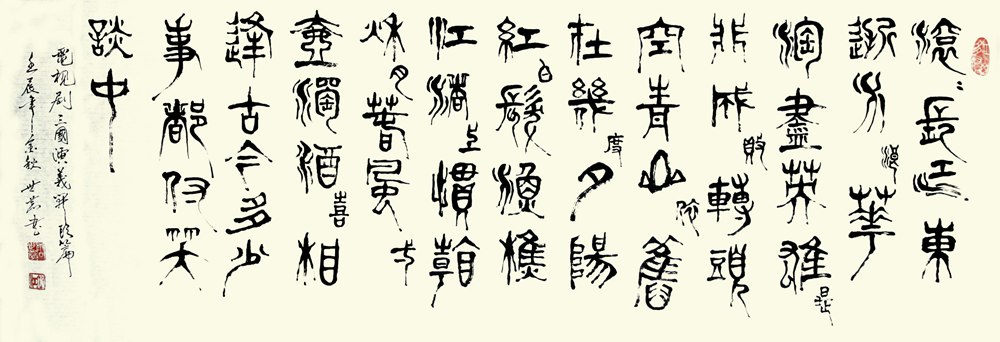 滾〻長江東
逝水浪華
淘盡英雄是
非成敗轉頭
空青山依舊
在幾度夕陽
紅白髮漁樵
江渚上慣看
秋月春風弌
壺濁酒喜相
逢古今多少
事都付笑
談中
電視劇三國演義篇
壬辰年金秋世書